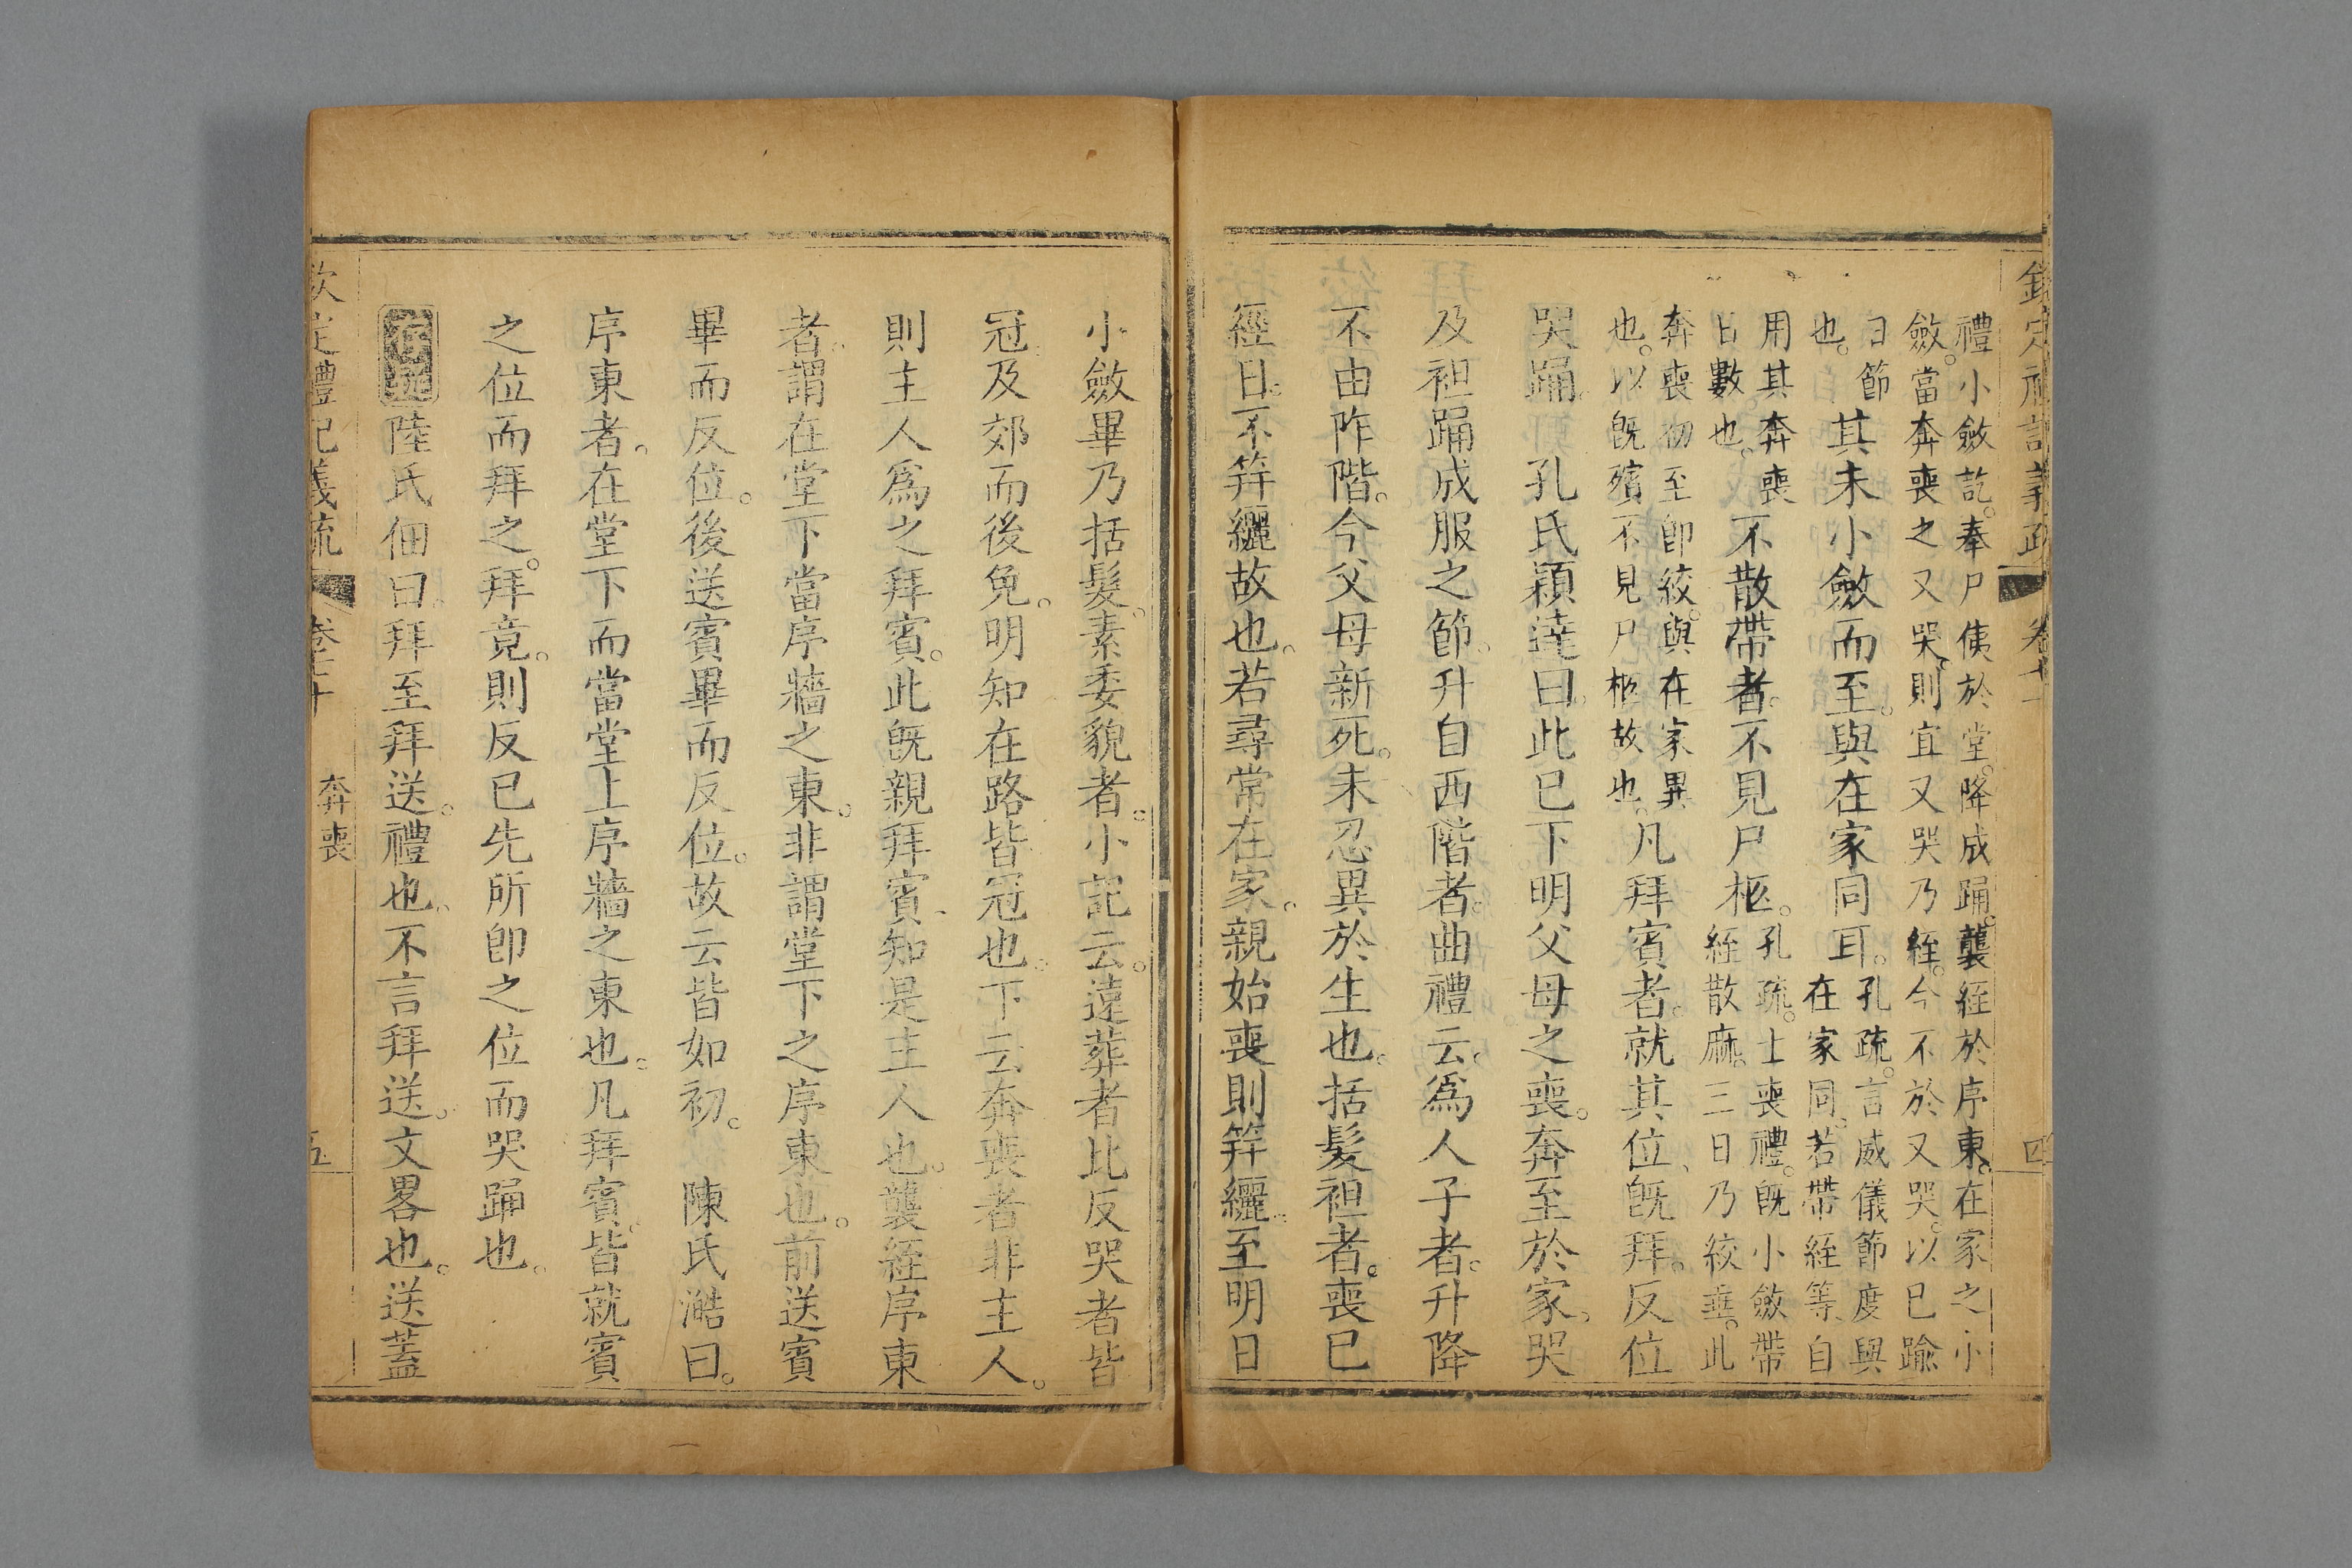 禮小斂訖。奉尸侇於堂。降成踊。襲絰於序東。在家之小
斂。當奔喪之又哭。則宜又哭乃絰。今不於又哭。以已踰
日節
也。
其未小斂而至。與在家同耳。
孔疏。言威儀節度與
在家同。若帶絰等。自
用其奔喪
日數也。
不散帶者。不見尸柩。
孔疏。士喪禮。旣小斂帶
絰散麻。三日乃絞垂。此
奔喪初至卽絞。與在家異
也。以旣殯不見尸柩故也。
凡拜賓者。就其位。旣拜。反位
哭踊。 孔氏穎達曰。此已下明父母之喪。奔至於家。哭
及袒踊成服之節。升自西階者。曲禮云。爲人子者。升降
不由阼階。今父母新死。未忍異於生也。括髮袒者。喪已
經日。不筓纚故也。若尋常在家。親始喪則筓纚。至明日
小斂畢乃括髮。素委貌者。小記云。遠葬者比反哭者皆
冠及郊而後免。明知在路皆冠也。下云奔喪者非主人。
則主人爲之拜賓。此旣親拜賓。知是主人也。襲絰序東
者。謂在堂下當序牆之東。非謂堂下之序東也。前送賓
畢而反位。後送賓畢而反位。故云皆如初。 陳氏澔曰。
序東者。在堂下而當堂上序牆之東也。凡拜賓皆就賓
之位而拜之。拜竟。則反已先所卽之位而哭踊也。
陸氏佃曰。拜至拜送。禮也。不言拜送。文畧也。送蓋
奔喪
五
四